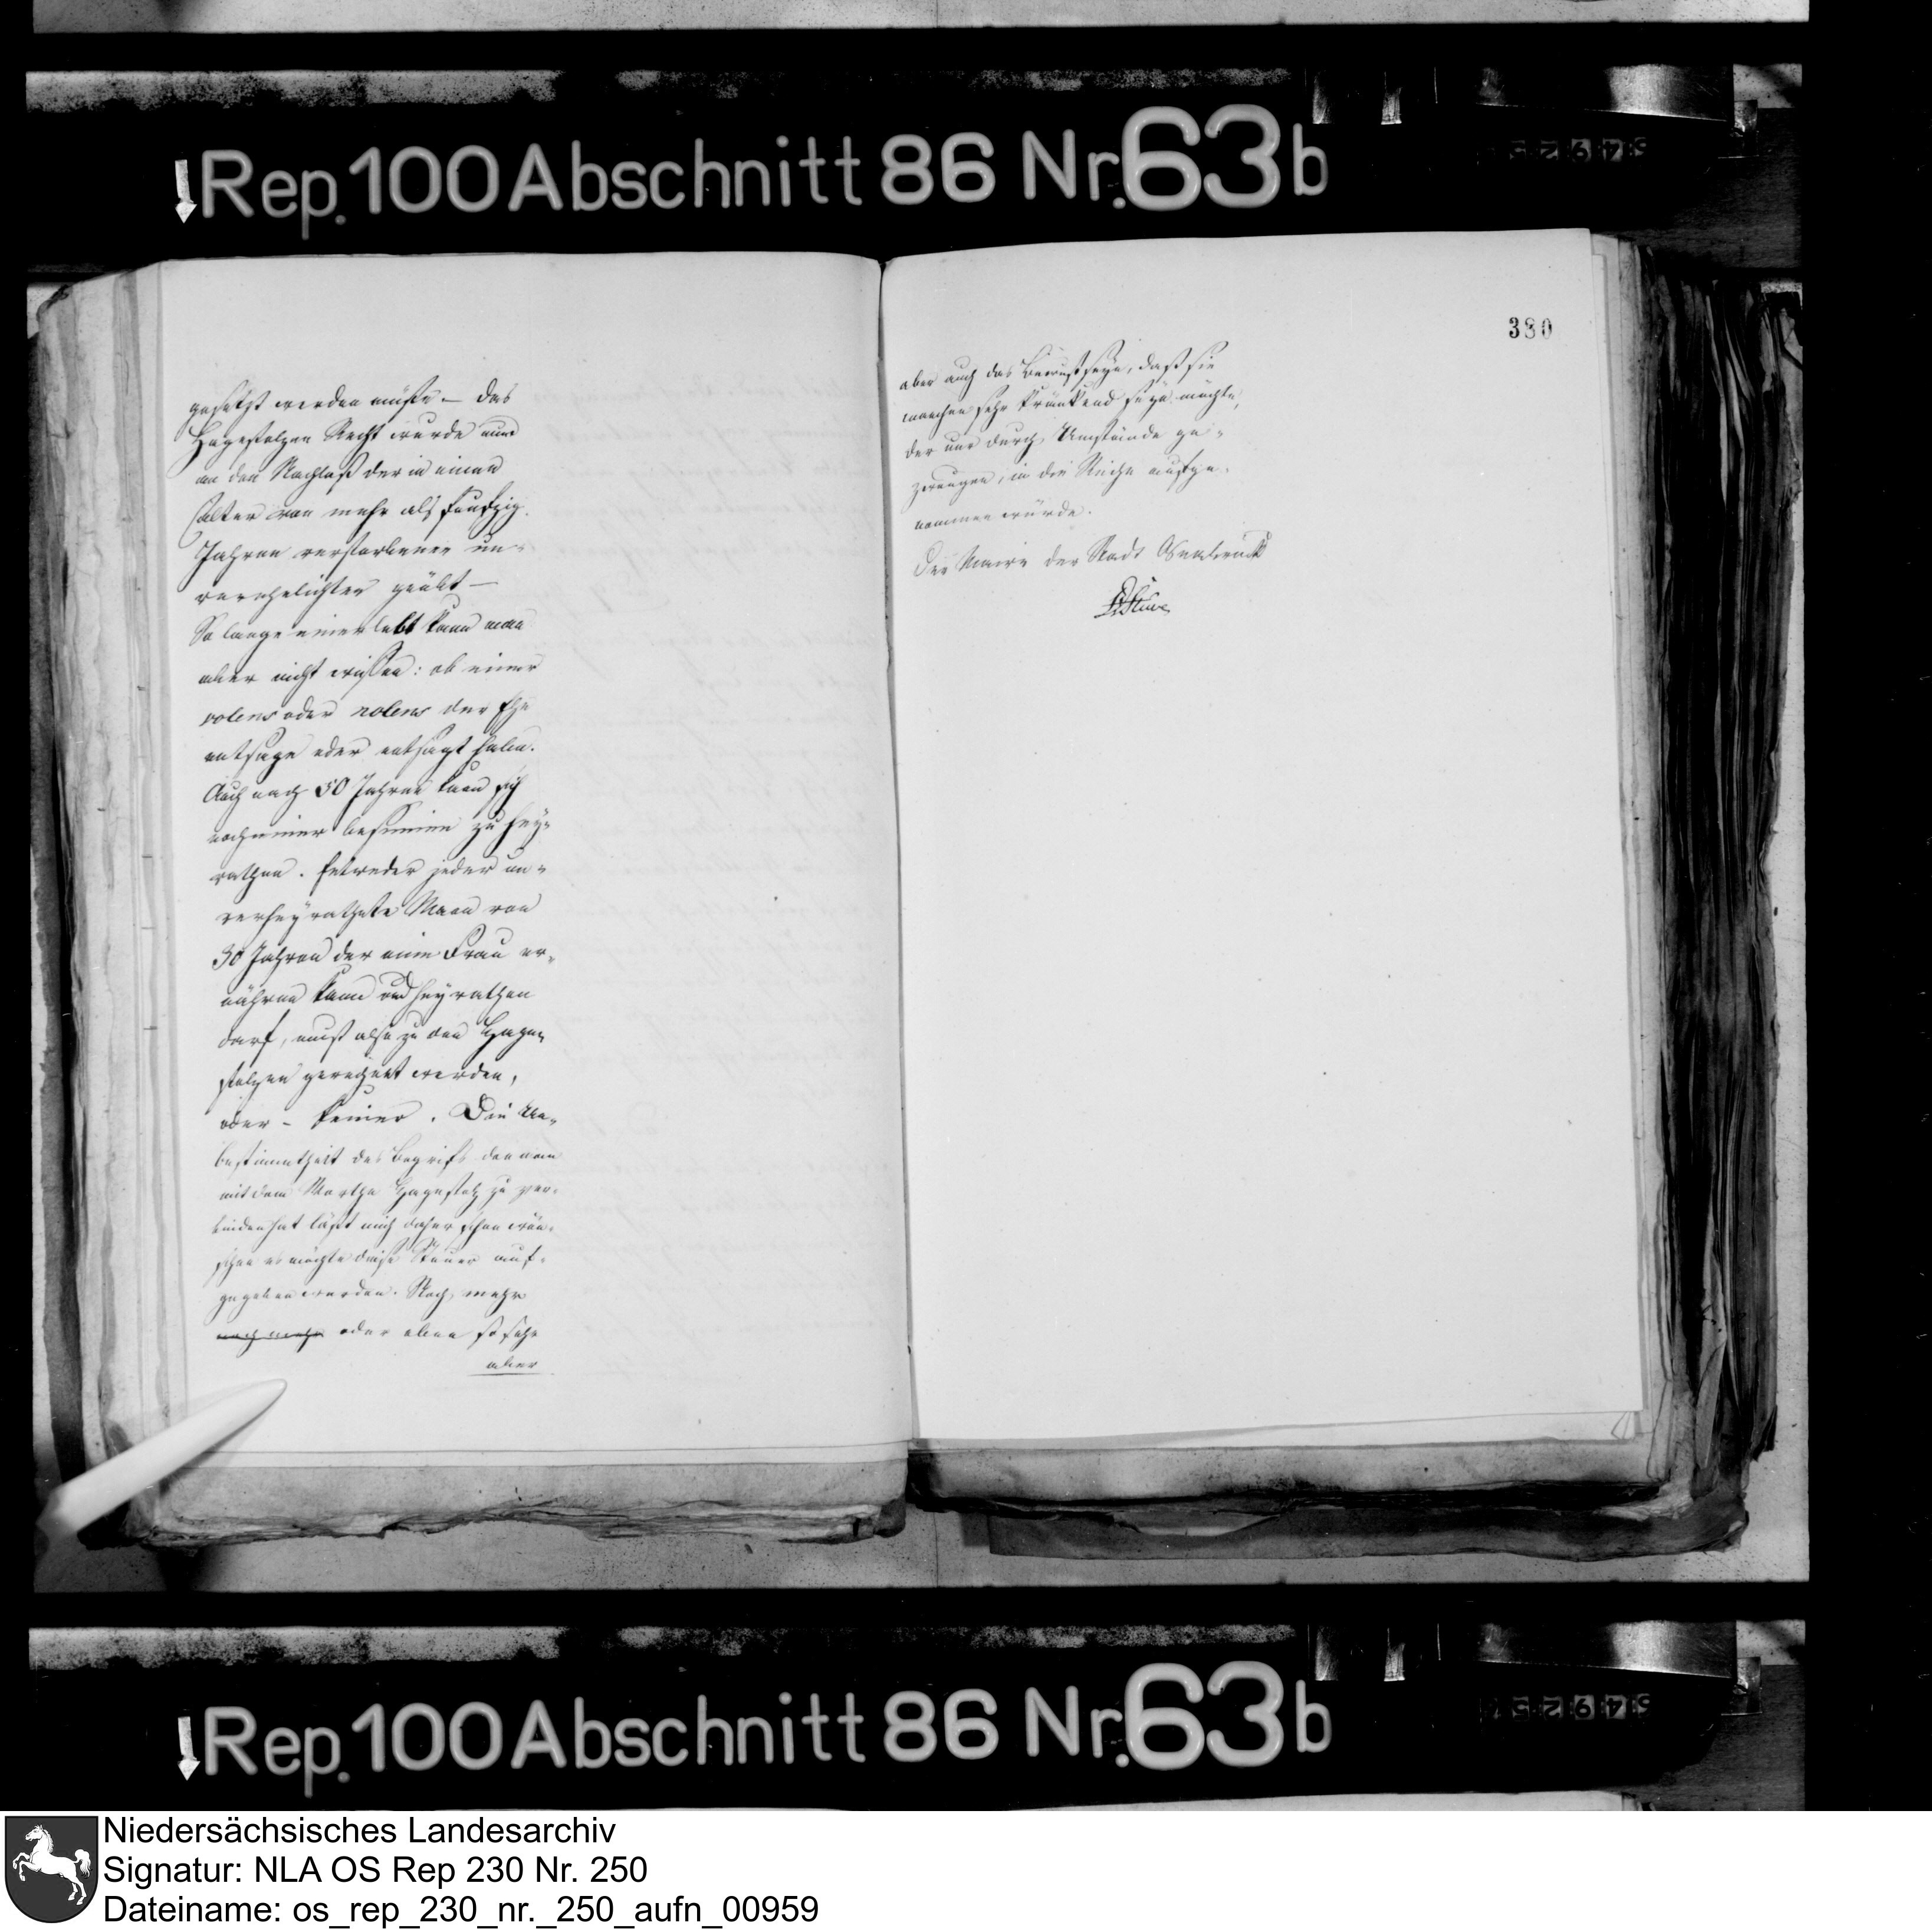 Rep. 100 Abschnitt 86 Nr. 63b
gesetzt werden müste – das
Hagestolzen Recht wurde nur
an den Nachlaß der in einem
Alter von mehr als funfzig
Jahren verstorbener un-
verehelichter geübt –
So lange einer lebt kann man
aber nicht wissen: ob einer
volens oder nolens der Ehe
entsage oder entsagt habe.
Auch nach 50 Jahren kann sich
noch einer besinnen zu hey-
rathen. Entweder jeder un-
verheyrathete Mann von
30 Jahren der eine Frau er-
nähren kann und heyrathen
darf, muß also zu den Hage-
stolzen gerechnet werden,
oder – keiner. Die Un-
bestimmtheit des Begrifs den man
mit dem Worthe Hagestolz zu ver-
binden hat läßt mich daher schon wün-
schen es möchte diese Steuer auf-
gegeben werden. Noch mehr
noch mehr oder eben so sehr
aber
330
aber auch das Bewustseyn, daß sie
manchem sehr kränkend seyn möchte,
der nur durch Umstände ge-
zwungen, in die Reihe aufge-
nommen würde.
Der Maire der Stadt Osnabrück
Stüve
Rep. 100 Abschnitt 86 Nr. 63b
Niedersächsisches Landesarchiv
Signatur: NLA OS Rep 230 Nr. 250
Dateiname: os_rep_230_nr._250_aufn_00959